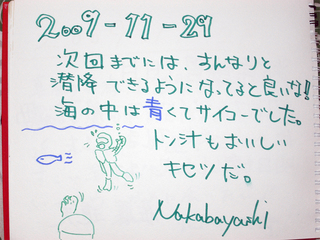 2009-11-29
次回までには、すんなりと
潜降できるようになってると良いな!
海の中は青くてサイコーでした。
トン汁もおいしい
キセツだ。
Nakabayashi